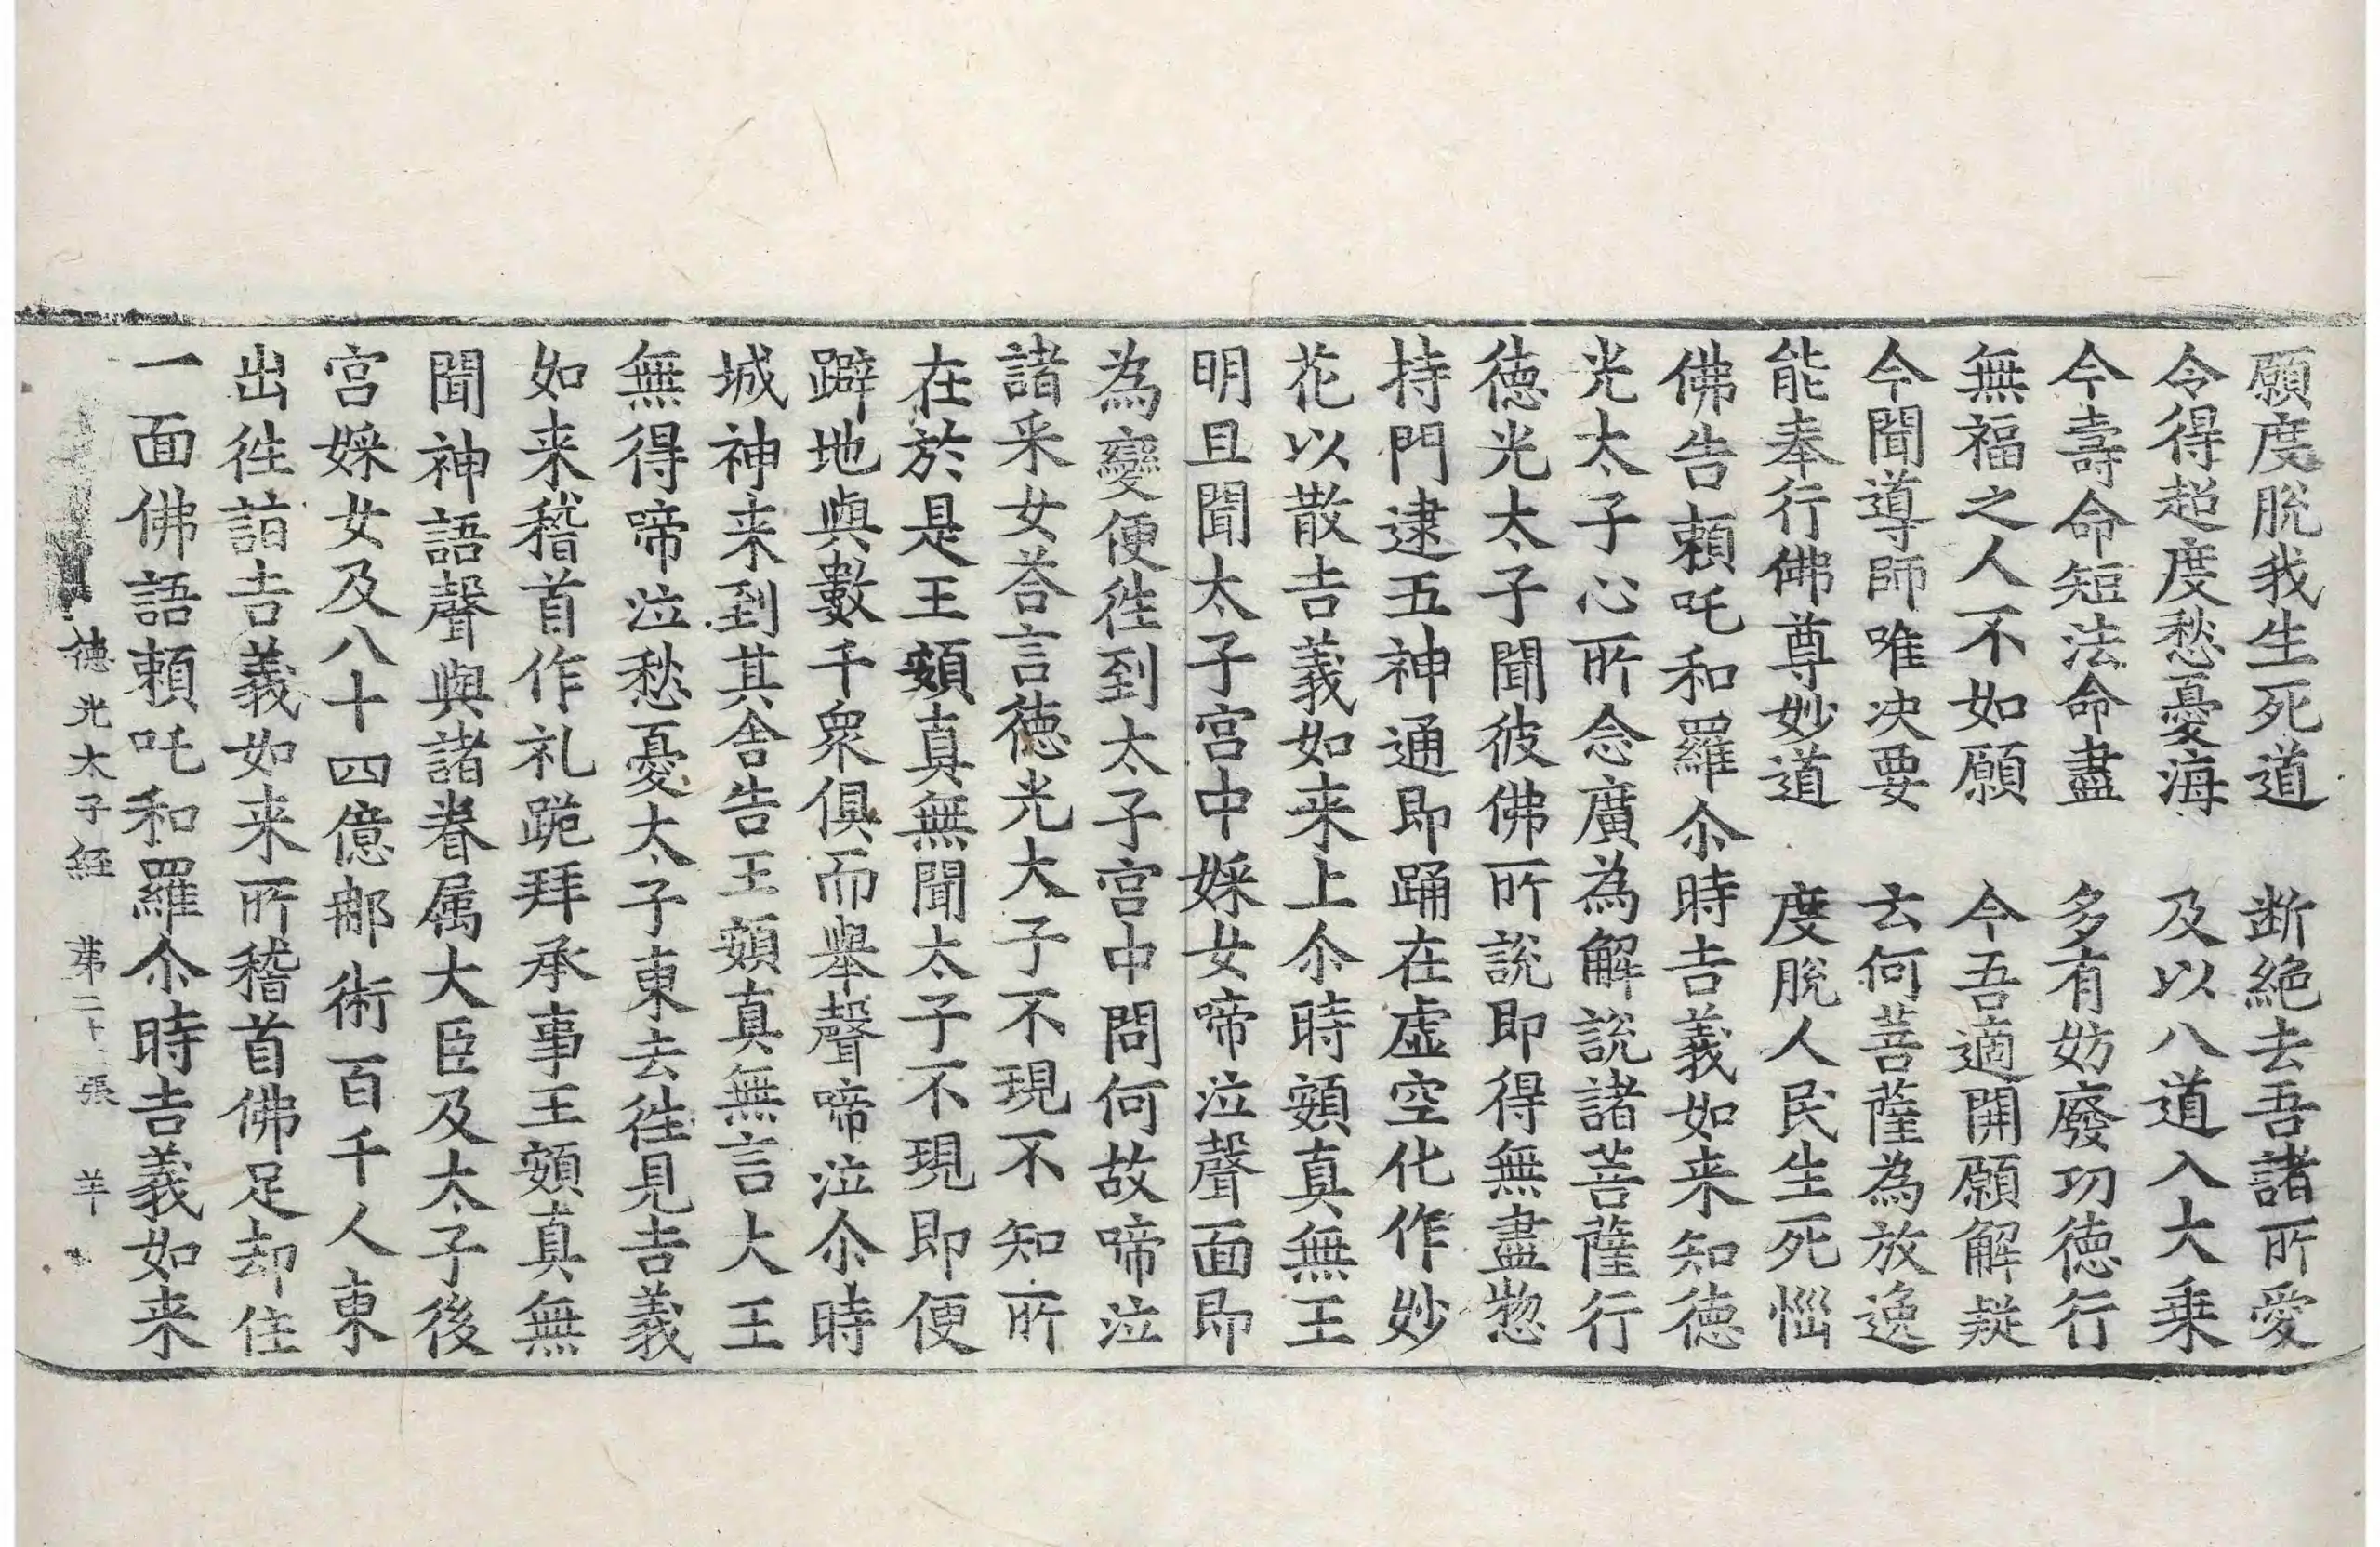 願度脫我生死道　斷絕去吾諸所愛
令得超度愁憂海　及以八道入大乗
今壽命短法命盡　多有妨廢功徳行
無福之人不如願　今吾適開願解疑
今聞導師唯决要　云何菩薩為放逸
能奉行佛尊妙道　度脫人民生死惱
佛告頼吒和羅尒時吉義如来知徳
光太子心所念廣為解說諸菩薩行
徳光太子聞彼佛所說即得無盡惣
持門逮五神通即踊在虛空化作妙
花以散吉義如来上尒時頞真無王
明旦聞太子宮中婇女啼泣聲面即
為變便徃到太子宮中問何故啼泣
諸釆女荅言徳光大子不現不知所
在於是王頞真無聞太子不現即便
躃地與數千衆俱而舉聲啼泣尒時
城神来到其舍告王頞真無言大王
無得啼泣愁憂太子東去徃見吉義
如来稽首作礼跪拜承事王頞真無
聞神語聲與諸眷属大臣及太子後
宮婇女及八十四億𨚗術百千人東
出徃詣吉義如来所稽首佛足却住
一面佛語頼吒和羅尒時吉義如来
徳光太子経　苐二十張　羊